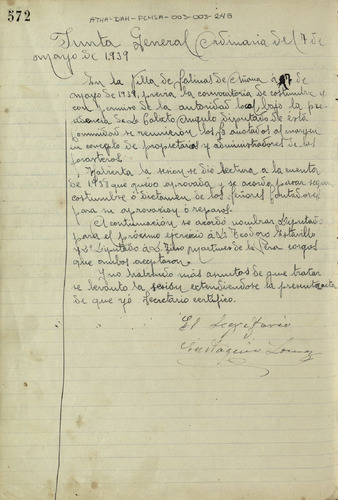 572
ATHA-DAH-FCMSA-003-003-248
Junta General Ordinaria del 7 de
mayo de 1939
En la Villa de Salinas de Añana a 7 de
mayo de 1939, previa la convocatoria de costumbre y
con permiso de la autoridad local bajo la pre
sidencia de D. Angulo Diputado de esta
comunidad se reunieron los anotados al margen
en concepto de propietarios y administradores de los
forasteros.
Abierta la sesion se dio lectura a la cuenta
de 1938 que quedo aprovada y se acordo pasar segun
costumbre a dictamen de los señores contadores
para su aprovacion o reparos.
A continuacion se acordo nombrar Diputado
para el proximo ejercicio a D. Teodoro
y 2º Diputado a D. Martinez de la Pera cargos
que ambos aceptaron.
Y no habiendo más asuntos de que tratar
se levanto la sesion extendiendose la presente acta
de que yo Secretario certifico.
El Secretario